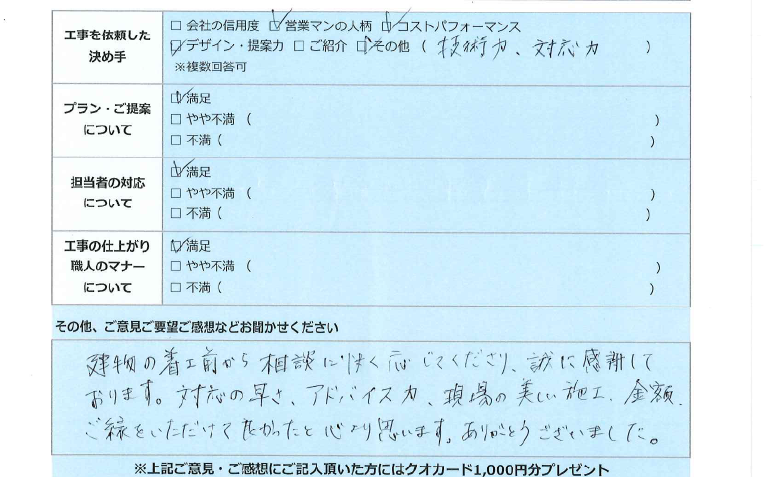 工事を依頼した
決め手
□ 会社の信用度 ☑ 営業マンの人柄 ☑ コストパフォーマンス
☑ デザイン・提案力 □ ご紹介 ☑ その他 ( 技術力、対応力 )
※複数回答可
プラン・ご提案
について
☑ 満足
□ やや不満 ( )
□ 不満 ( )
担当者の対応
について
☑ 満足
□ やや不満 ( )
□ 不満 ( )
工事の仕上がり
職人のマナー
について
☑ 満足
□ やや不満 ( )
□ 不満 ( )
その他、ご意見ご要望ご感想などお聞かせください
建物の着工前から相談に快く応じてくださり、誠に感謝して
おります。対応の早さ、アドバイス力、現場の美しい施工、金額、
ご縁をいただけて良かったと心より思います。ありがとうございました。
※上記ご意見・ご感想にご記入頂いた方にはクオカード1,000円分プレゼント